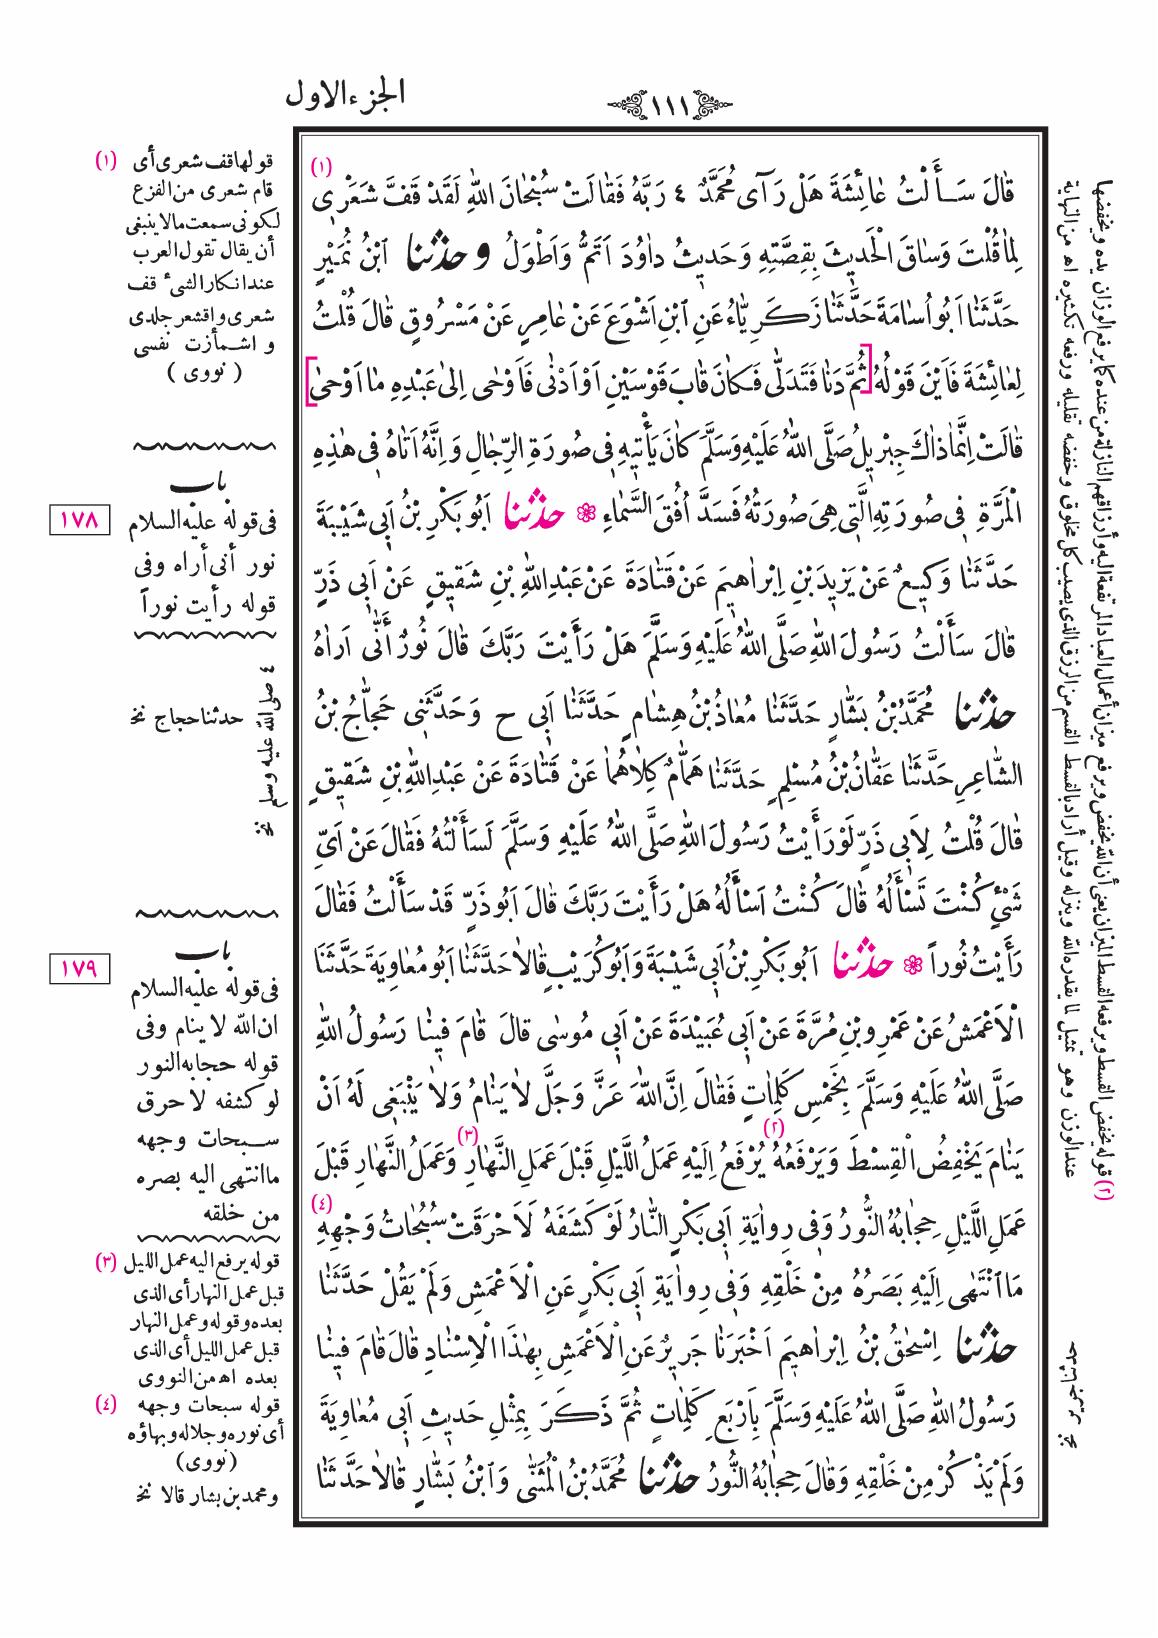 الجزء الاول
١١١
قَالَ سَأَلْتُ عَائِشَةَ هَلْ رَآى مُحَمَّدٌ ٤ رَبَّهُ فَقَالَتْ سُبْحَانَ اللهِ لَقَدْ قَفَّ شَعَرِى (١)
لِمَا قُلْتَ وَسَاقَ الْحَدِيثَ بِقِصَّتِهِ وَحَدِيثُ دَاوُدَ اَتَمُّ وَاَطْوَلُ و حدثنا ابْنُ نُمَيْرٍ
حَدَّثَنَا اَبُو اُسَامَةَ حَدَّثَنَا زَكَرِيَّاءُ عَنِ ابْنِ اَشْوَعَ عَنْ عَامِرٍ عَنْ مَسْرُوقٍ قَالَ قُلْتُ
لِعَائِشَةَ فَاَيْنَ قَوْلُهُ [ثُمَّ دَنَا فَتَدَلّٰى فَكَانَ قَابَ قَوْسَيْنِ اَوْ اَدْنٰى فَاَوْحٰى اِلىٰ عَبْدِهِ مَا اَوْحىٰ]
قَالَتْ اِنَّمَا ذَاكَ جِبْرِيلُ صَلَّى اللهُ عَلَيْهِ وَسَلَّمَ كَانَ يَأْتِيهِ فِى صُورَةِ الرِّجَالِ وَاِنَّهُ اَتَاهُ فِى هٰذِهِ
الْمَرَّةِ فِى صُورَتِهِ الَّتِى هِىَ صُورَتُهُ فَسَدَّ اُفُقَ السَّمَاءِ ❁ حدثنا اَبُو بَكْرِ بْنُ اَبِى شَيْبَةَ
حَدَّثَنَا وَكِيعٌ عَنْ يَزِيدَ بْنِ اِبْرَاهِيمَ عَنْ قَتَادَةَ عَنْ عَبْدِ اللهِ بْنِ شَقِيقٍ عَنْ اَبِى ذَرٍّ
قَالَ سَأَلْتُ رَسُولَ اللهِ صَلَّى اللهُ عَلَيْهِ وَسَلَّمَ هَلْ رَأَيْتَ رَبَّكَ قَالَ نُورٌ اَنّٰى اَرَاهُ
حدثنا مُحَمَّدُ بْنُ بَشَّارٍ حَدَّثَنَا مُعَاذُ بْنُ هِشَامٍ حَدَّثَنَا اَبِى ح وَحَدَّثَنِى حَجَّاجُ بْنُ
الشَّاعِرِ حَدَّثَنَا عَفَّانُ بْنُ مُسْلِمٍ حَدَّثَنَا هَمَّامٌ كِلَاهُمَا عَنْ قَتَادَةَ عَنْ عَبْدِ اللهِ بْنِ شَقِيقٍ
قَالَ قُلْتُ لِاَبِى ذَرٍّ لَوْ رَأَيْتُ رَسُولَ اللهِ صَلَّى اللهُ عَلَيْهِ وَسَلَّمَ لَسَأَلْتُهُ فَقَالَ عَنْ اَىِّ
شَىْءٍ كُنْتَ تَسْأَلُهُ قَالَ كُنْتُ اَسْأَلُهُ هَلْ رَأَيْتَ رَبَّكَ قَالَ اَبُو ذَرٍّ قَدْ سَأَلْتُ فَقَالَ
رَأَيْتُ نُوراً ❁ حدثنا اَبُو بَكْرِ بْنُ اَبِى شَيْبَةَ وَاَبُو كُرَيْبٍ قَالَا حَدَّثَنَا اَبُو مُعَاوِيَةَ حَدَّثَنَا
الْاَعْمَشُ عَنْ عَمْرِو بْنِ مُرَّةَ عَنْ اَبِى عُبَيْدَةَ عَنْ اَبِى مُوسٰى قَالَ قَامَ فِينَا رَسُولُ اللهِ
صَلَّى اللهُ عَلَيْهِ وَسَلَّمَ بِخَمْسِ كَلِمَاتٍ فَقَالَ اِنَّ اللهَ عَزَّ وَجَلَّ لَا يَنَامُ وَلَا يَنْبَغِى لَهُ اَنْ
يَنَامَ يَخْفِضُ الْقِسْطَ وَيَرْفَعُهُ (٢) يُرْفَعُ اِلَيْهِ عَمَلُ اللَّيْلِ قَبْلَ عَمَلِ النَّهَارِ (٣) وَعَمَلُ النَّهَارِ قَبْلَ
عَمَلِ اللَّيْلِ حِجَابُهُ النُّورُ وَفِى رِوَايَةِ اَبِى بَكْرٍ النَّارُ لَوْ كَشَفَهُ لَاَحْرَقَتْ سُبُحَاتُ وَجْهِهِ (٤)
مَا انْتَهٰى اِلَيْهِ بَصَرُهُ مِنْ خَلْقِهِ وَفِى رِوَايَةِ اَبِى بَكْرٍ عَنِ الْاَعْمَشِ وَلَمْ يَقُلْ حَدَّثَنَا
حدثنا اِسْحٰقُ بْنُ اِبْرَاهِيمَ اَخْبَرَنَا جَرِيرٌ عَنِ الْاَعْمَشِ بِهٰذَا الْاِسْنَادِ قَالَ قَامَ فِينَا
رَسُولُ اللهِ صَلَّى اللهُ عَلَيْهِ وَسَلَّمَ بِاَرْبَعِ كَلِمَاتٍ ثُمَّ ذَكَرَ بِمِثْلِ حَدِيثِ اَبِى مُعَاوِيَةَ
وَلَمْ يَذْكُرْ مِنْ خَلْقِهِ وَقَالَ حِجَابُهُ النُّورُ حدثنا مُحَمَّدُ بْنُ الْمُثَنّٰى وَابْنُ بَشَّارٍ قَالَا حَدَّثَنَا
(١) قولها قف شعرى أى
قام شعرى من الفزع
لكونى سمعت مالا ينبغى
أن يقال تقول العرب
عند انكار الشىء قف
شعرى واقشعر جلدى
واشمأزت نفسى
(نووى)
باب
١٧٨
فى قوله عليه السلام
نور أنى أراه وفى
قوله رأيت نوراً
٤ صلى الله عليه وسلم نخ
حدثنا حجاج نخ
باب
١٧٩
فى قوله عليه السلام
ان الله لا ينام وفى
قوله حجابه النور
لو كشفه لاحرق
سبحات وجهه
ما انتهى اليه بصره
من خلقه
(٣) قوله يرفع اليه عمل الليل
قبل عمل النهار أى الذى
بعده وقوله وعمل النهار
قبل عمل الليل أى الذى
بعده اه من النووى
(٤) قوله سبحات وجهه
أى نوره وجلاله وبهاؤه
(نووى)
ومحمد بن بشار قالا نخ
(٢) قوله يخفض القسط ويرفعه القسط الميزان يعنى أن الله يخفض ويرفع ميزان أعمال العباد المرتفعة اليه وأرزاقهم النازلة من عنده كما يرفع الوزان يده ويخفضها
عند الوزن وهو تمثيل لما يقدره الله وينزله وقيل أراد بالقسط القسم من الرزق الذى يصيب كل مخلوق وخفضه تقليله ورفعه تكثيره اه من النهاية